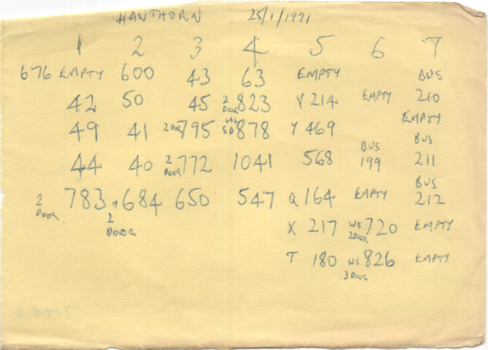 HAWTHORN 25/1/1991
1 2 3 4 5 6 7
676 EMPTY 600 43 63 EMPTY BUS
42 50 45 2 DOOR 823 V 214 EMPTY 210
49 41 2 DOOR 795 878 Y 469 EMPTY
44 40 2 DOOR 772 1041 568 BUS 199 BUS 211
2 DOOR 783 684 2 DOOR 650 547 Q 164 EMPTY BUS 212
X 217 W5 2 DOOR 720 EMPTY
T 180 W5 3 DOOR 826 EMPTY